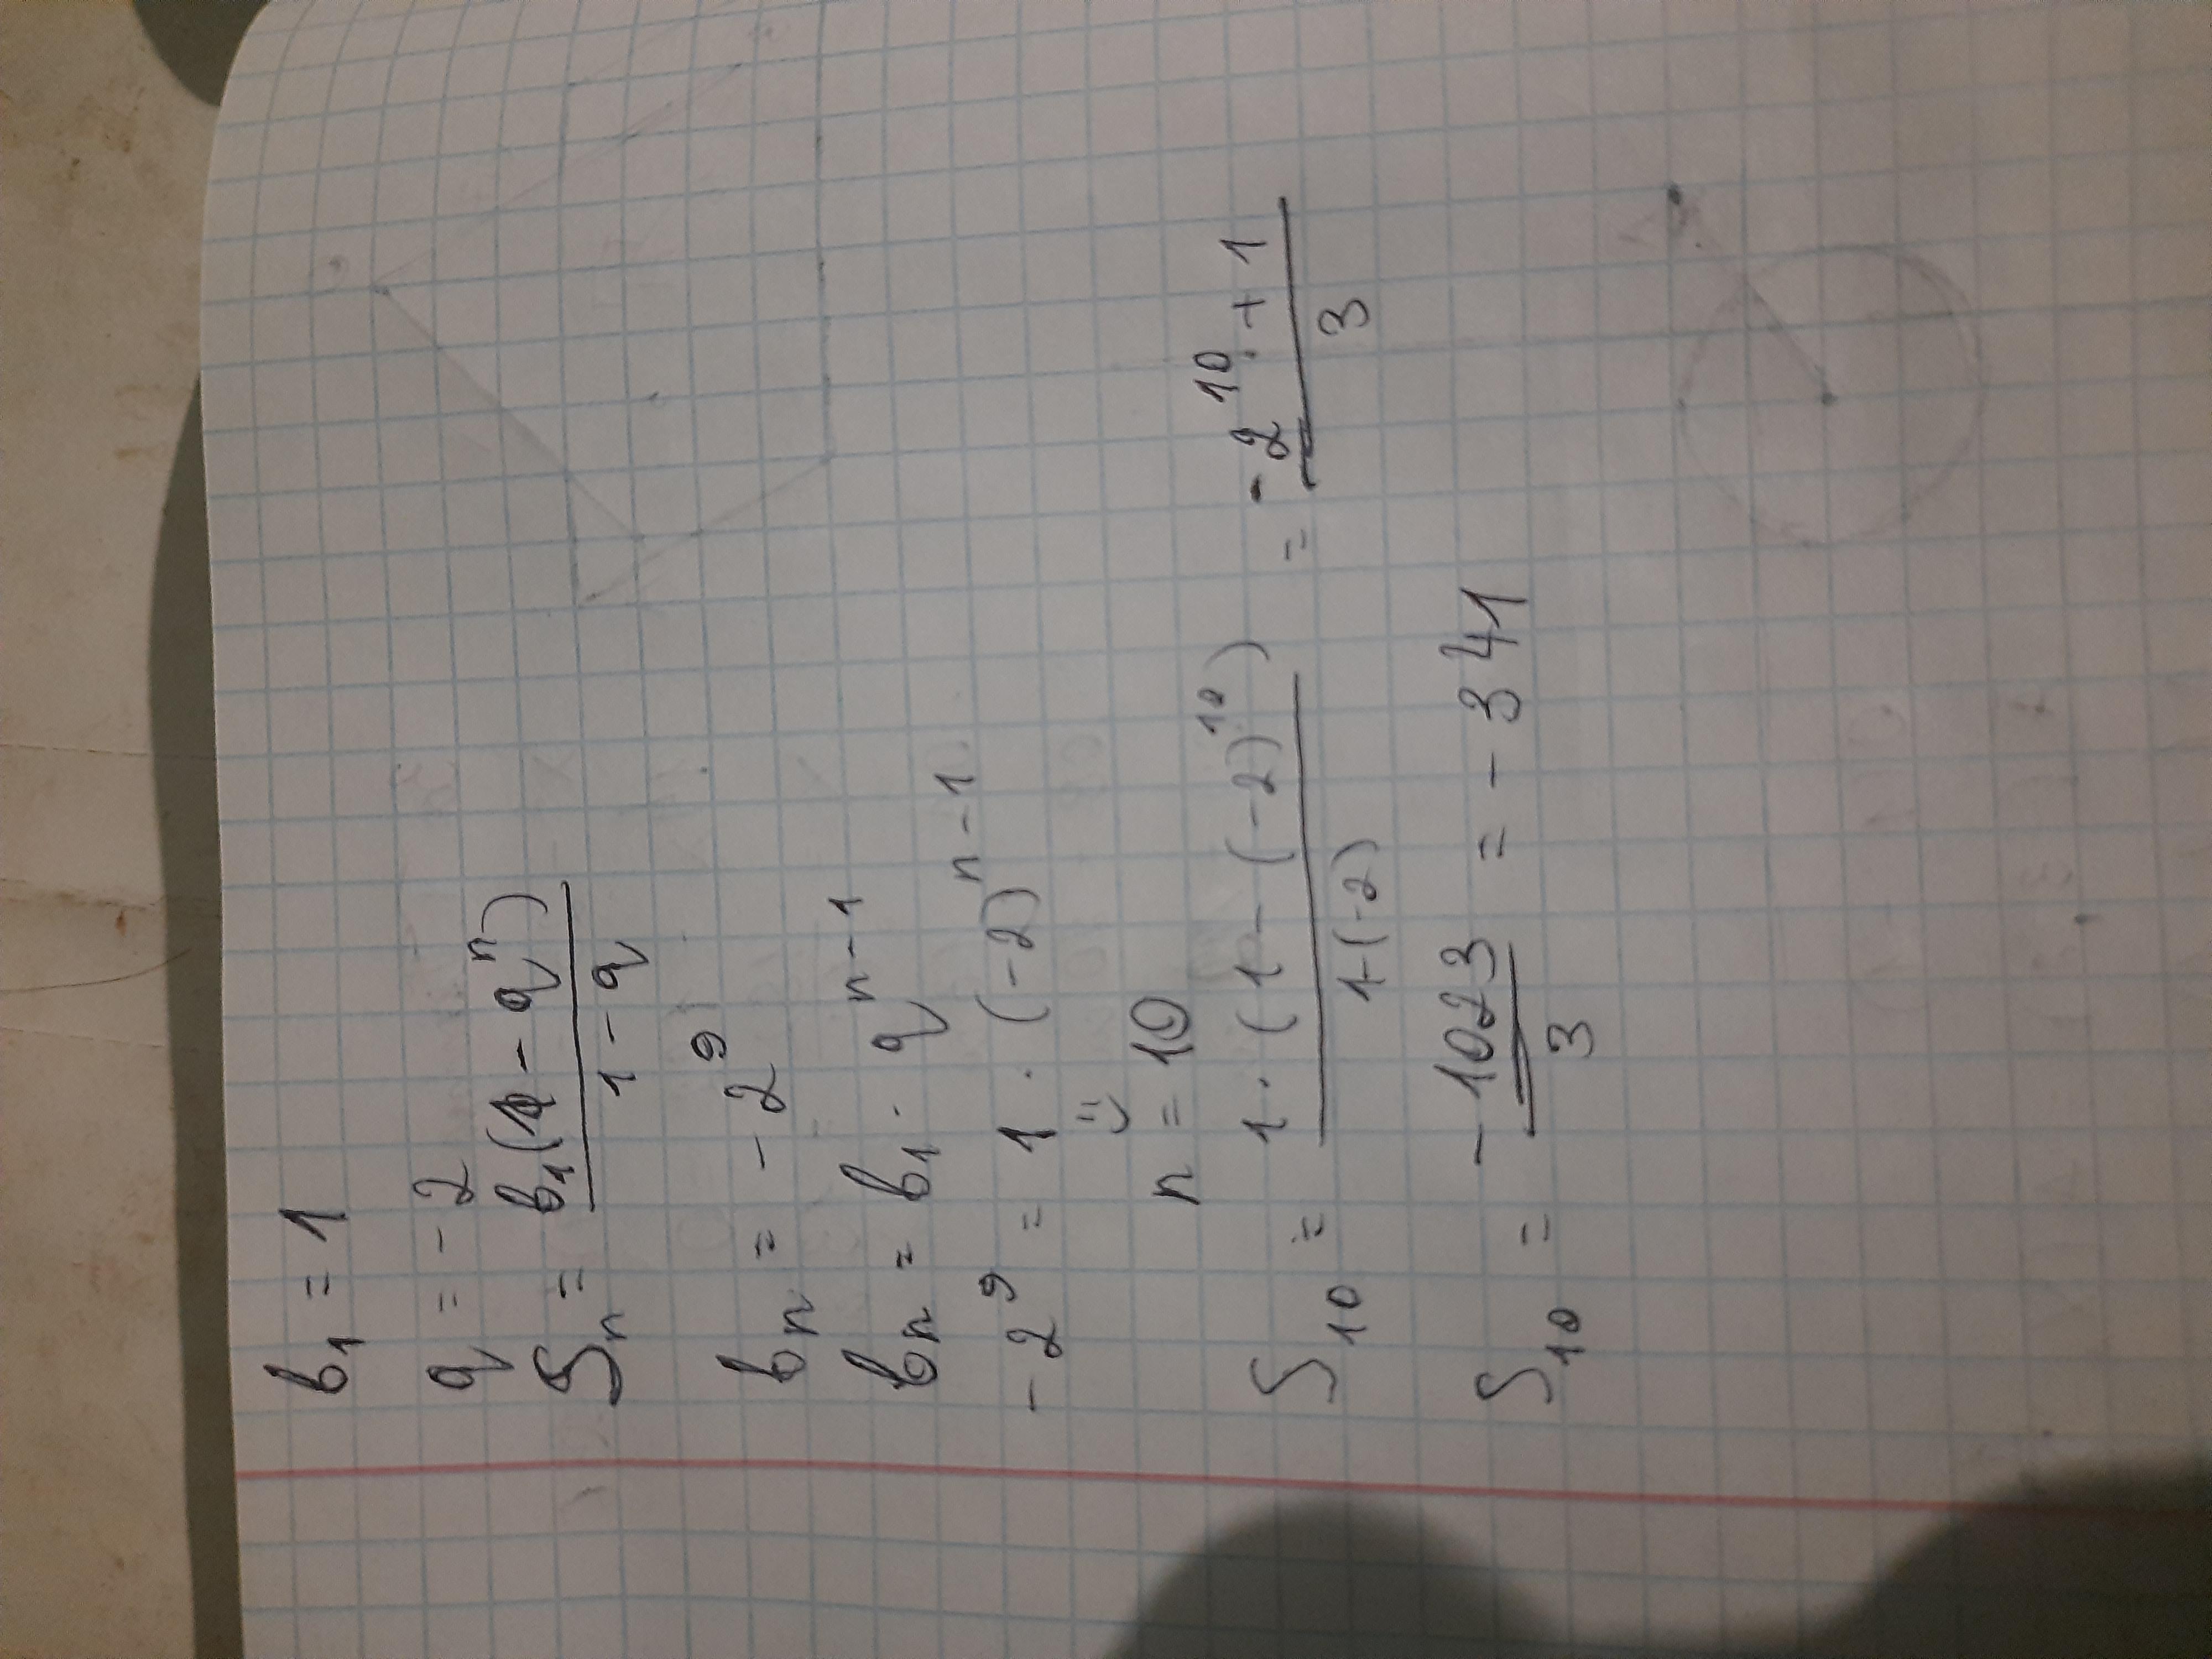 b₁ = 1
q = -2
Sₙ = b₁(1 - qⁿ) / 1 - q
bₙ = -2⁹
bₙ = b₁ · qⁿ⁻¹
-2⁹ = 1 · (-2)ⁿ⁻¹
⇓
n = 10
S₁₀ = 1 · (1 - (-2)¹⁰) / 1-(-2) = -2¹⁰ + 1 / 3
S₁₀ = -1023 / 3 = -341